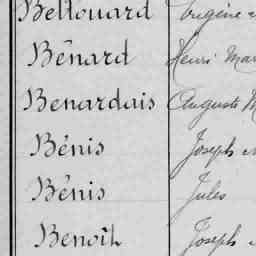 Bellouard Eugène
Bénard Henri
Benardais Auguste M
Bénis Joseph
Bénis Jules
Benoît Joseph